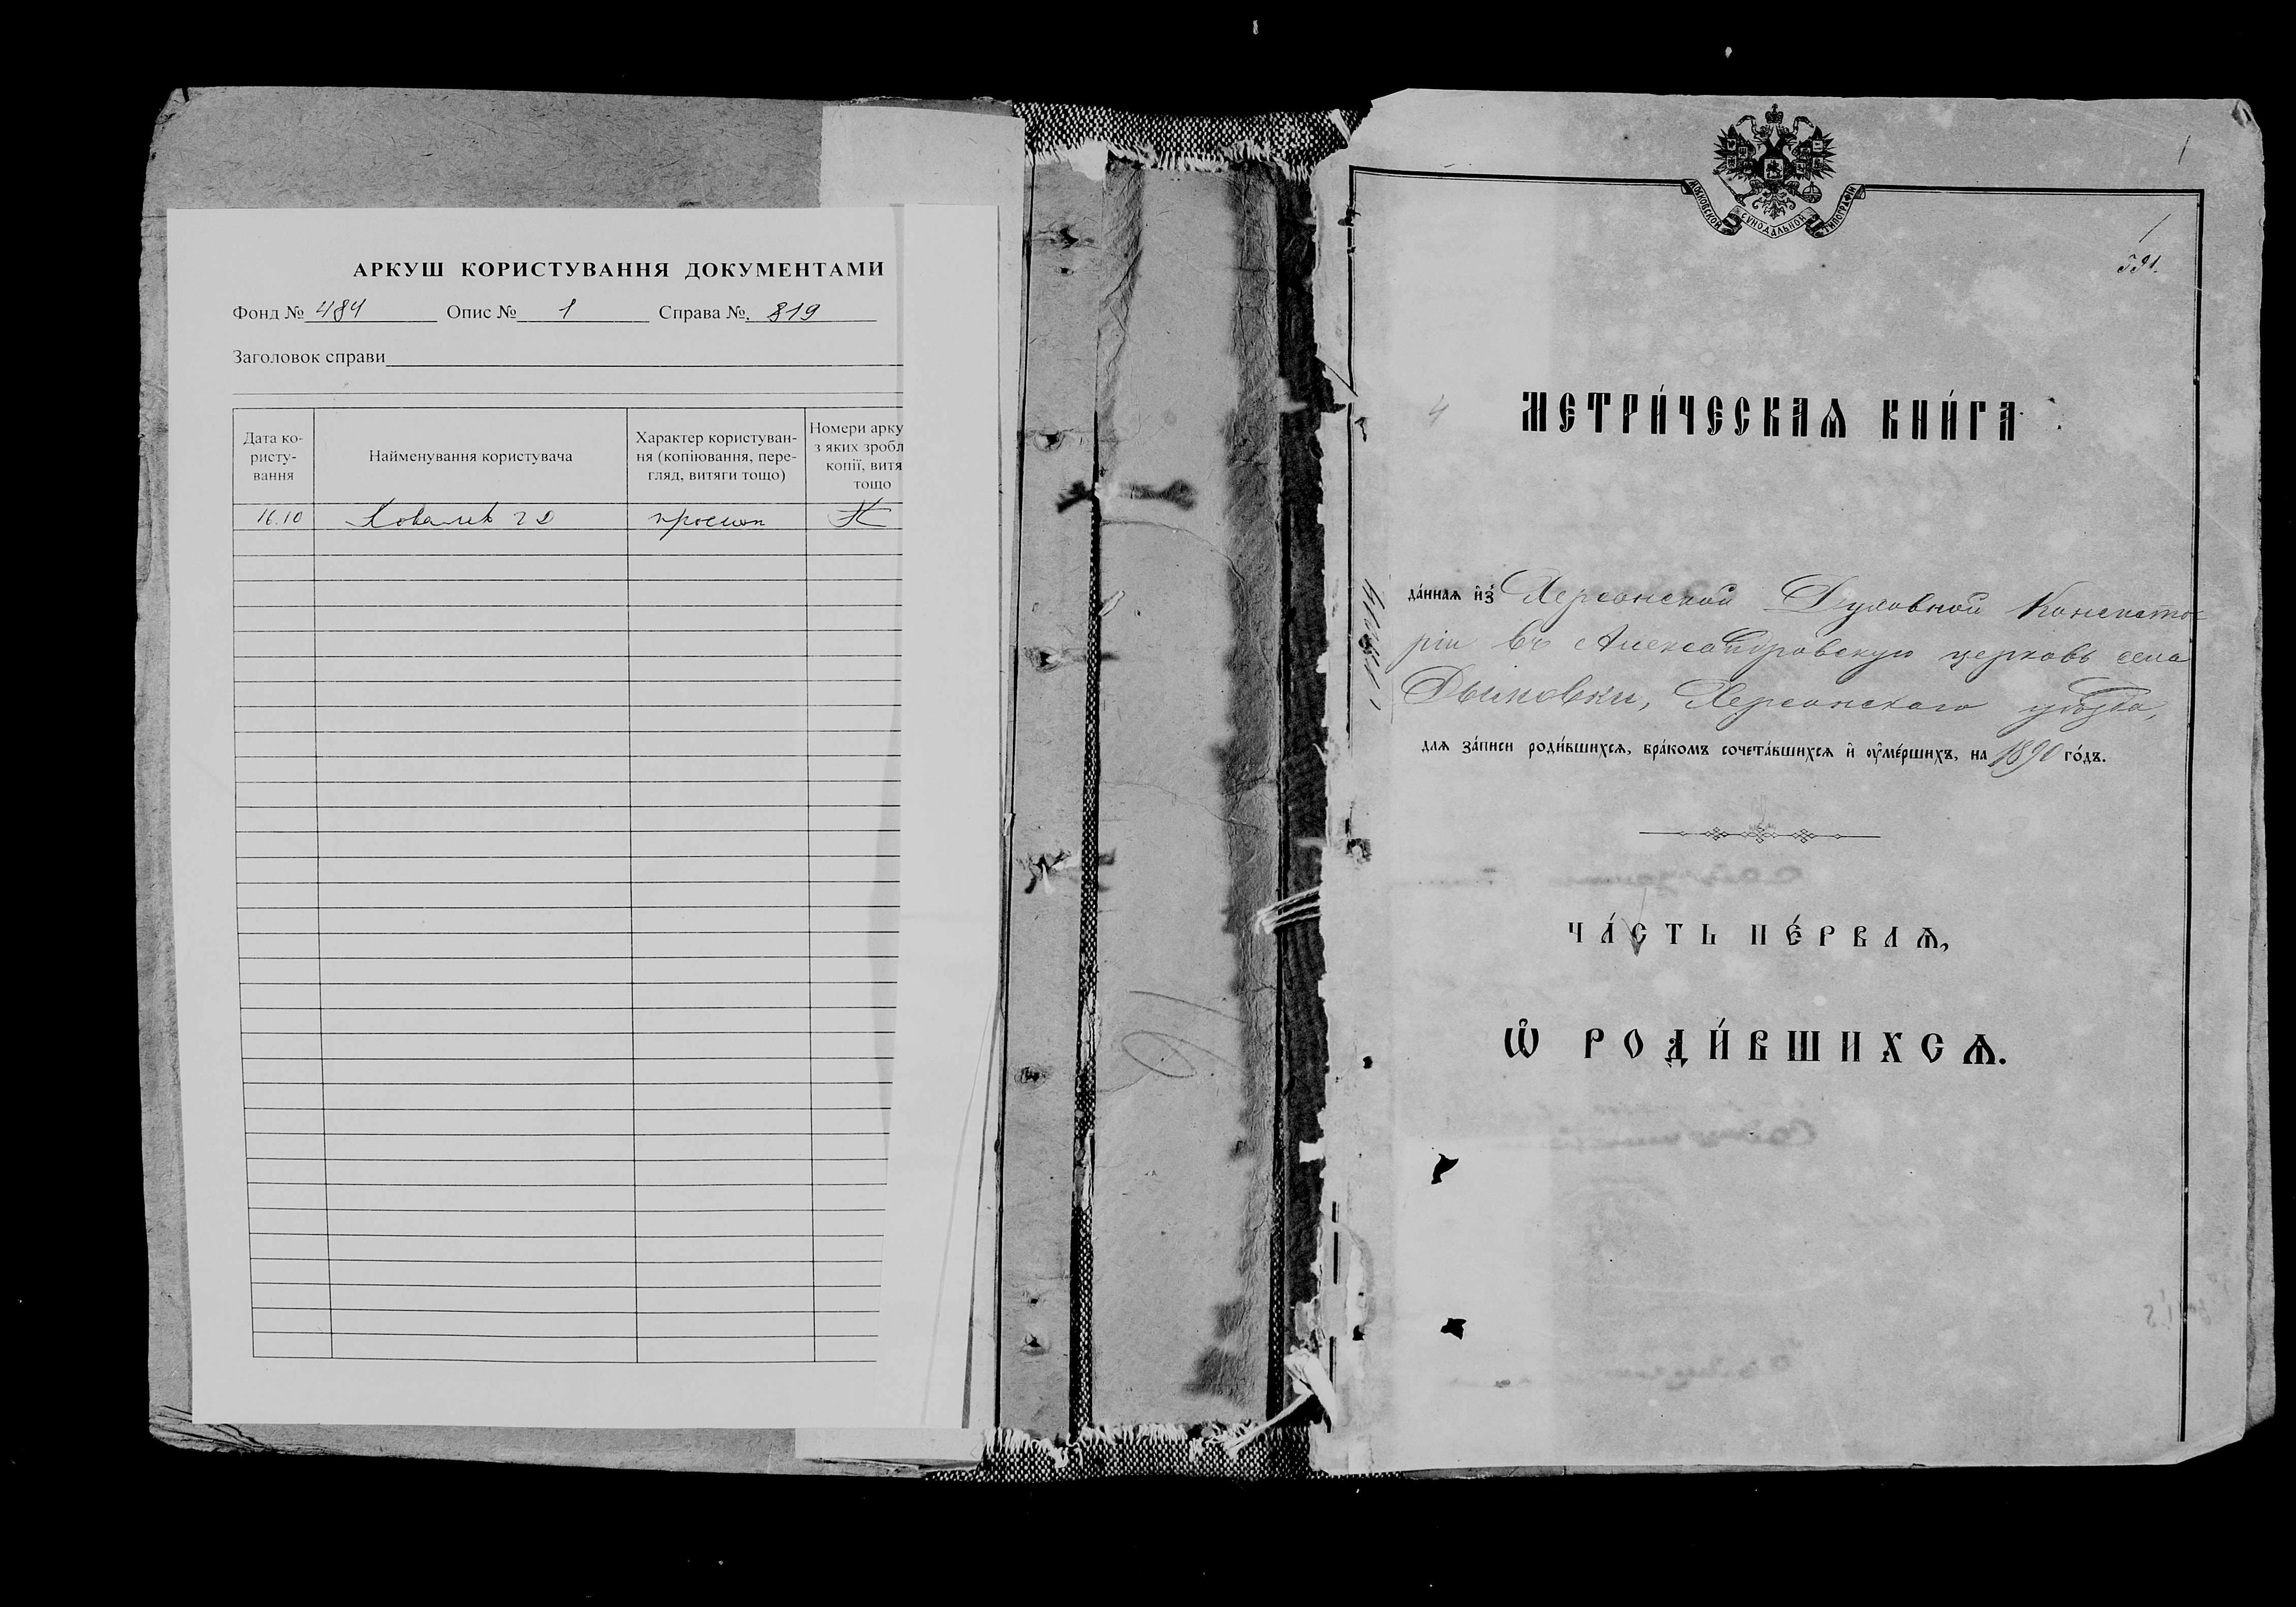 АРКУШ КОРИСТУВАННЯ ДОКУМЕНТАМИ
Фонд № 484 Опис № 1 Справа № 819
Заголовок справи
Дата ко-
ристу-
вання
Найменування користувача
Характер користуван-
ня (копіювання, пере-
гляд, витяги тощо)
Номери арку
з яких зробл
копії, витя
тощо
16.10
1
МОСКОВСКОЙ СѴНОДАЛЬНОЙ ТИПОГРАФІИ
1
591.
МЕТРИ́ЧЕСКАѦ КНИ́ГА
4
да́ннаѧ и҆з̾ Херсонской Духовной Консисто-
ріи въ Александровскую церковь села
Дымовки, Херсонскаго уѣзда,
длѧ за́писи роди́вшихсѧ, бра́комъ сочета́вшихсѧ и҆ ᲂу҆ме́ршихъ, на 1890 го́дъ.
ЧА́СТЬ ПЕ́РВАѦ,
Ѡ҆ РОДИ́ВШИХСѦ.